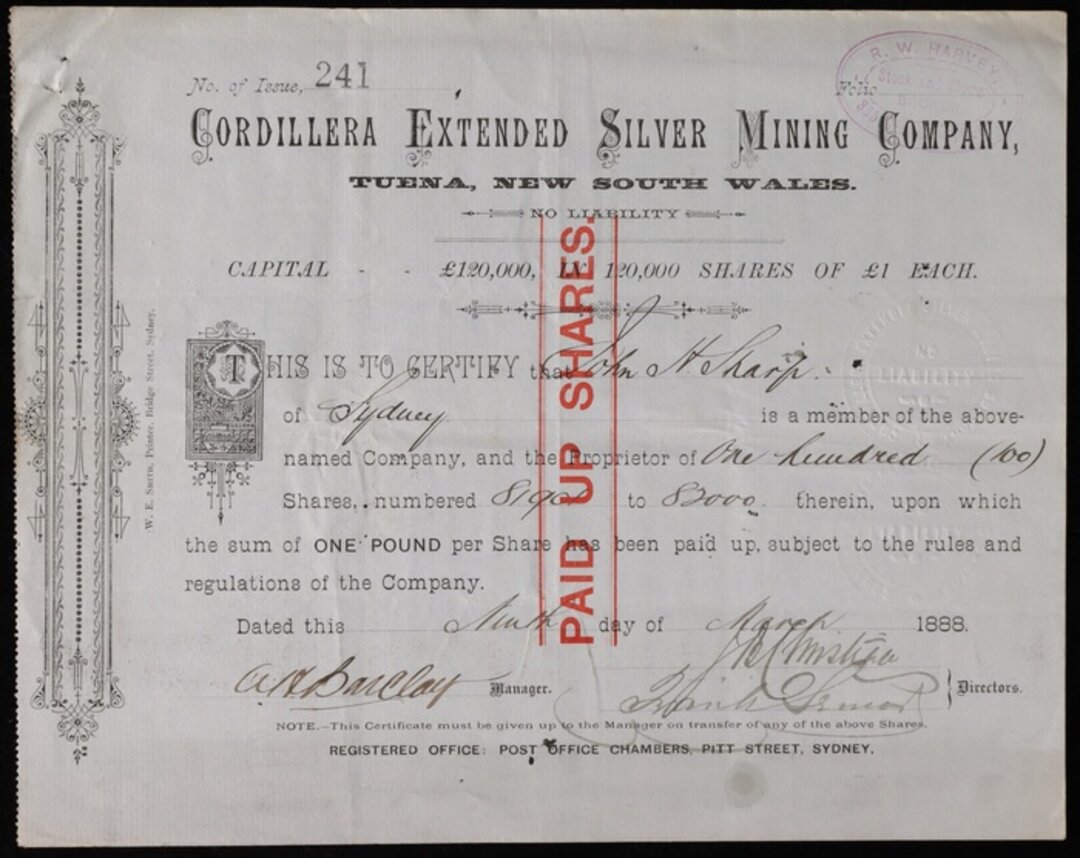 No. of Issue, 241
Folio
R. W. HARVEY,
CORDILLERA EXTENDED SILVER MINING COMPANY,
TUENA, NEW SOUTH WALES.
NO LIABILITY
CAPITAL - - £120,000, IN 120,000 SHARES OF £1 EACH.
THIS IS TO CERTIFY that John H. Sharp.
of Sydney is a member of the above-
named Company, and the Proprietor of One hundred (100)
Shares, numbered to therein, upon which
the sum of ONE POUND per Share has been paid up, subject to the rules and
regulations of the Company.
Dated this Ninth day of March 1888.
A H Barclay Manager.
Directors.
NOTE.—This Certificate must be given up to the Manager on transfer of any of the above Shares.
REGISTERED OFFICE: POST OFFICE CHAMBERS, PITT STREET, SYDNEY.
PAID UP SHARES.
W. E. SMITH, Printer, Bridge Street, Sydney.